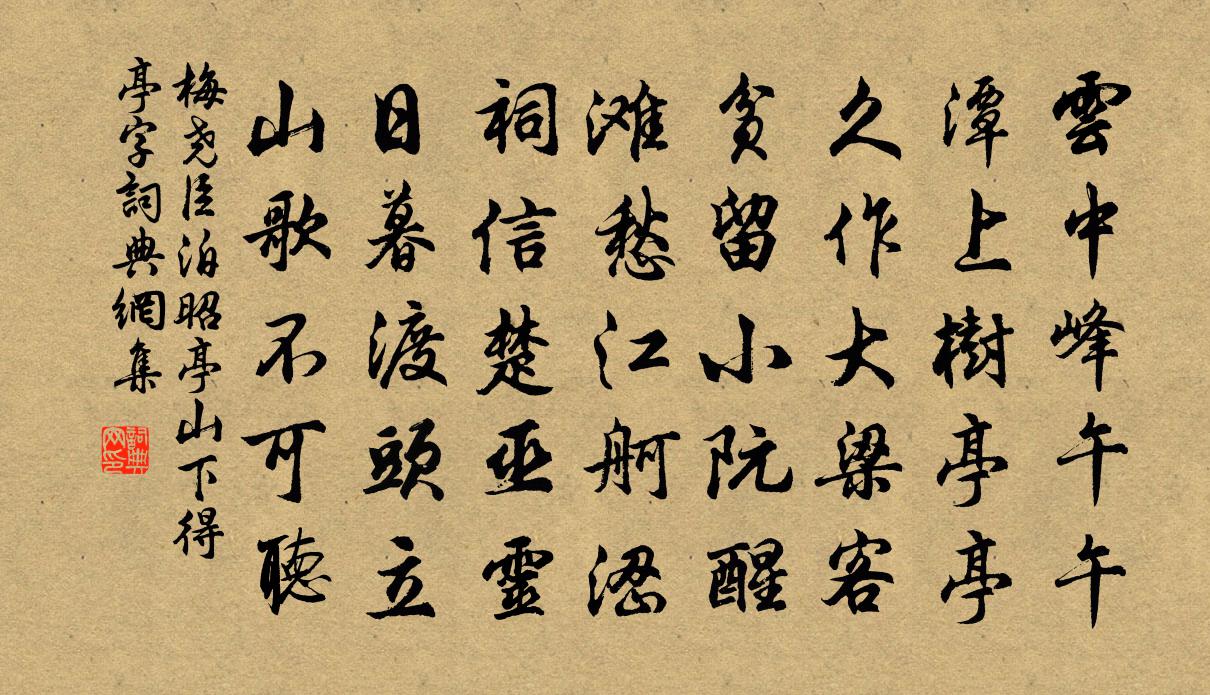 雲中峰午午
潭上樹亭亭
久作大梁客
貧留小阮醒
滩愁江舸涩
祠信楚巫靈
日暮渡頭立
山歌不可聽
梅尧臣泊昭亭山下得
亭字詞典網集
詞典
网印